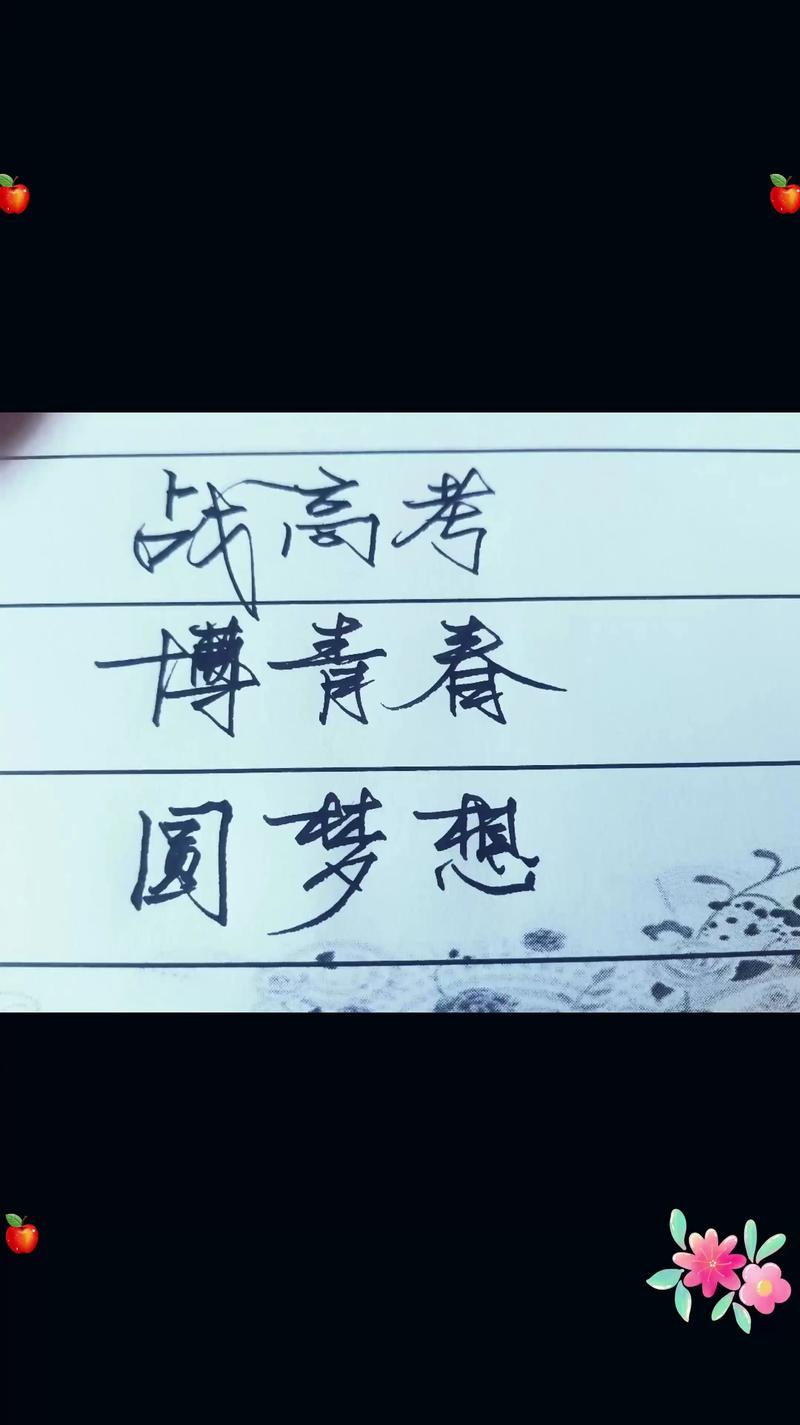 战高考
博青春
圆梦想